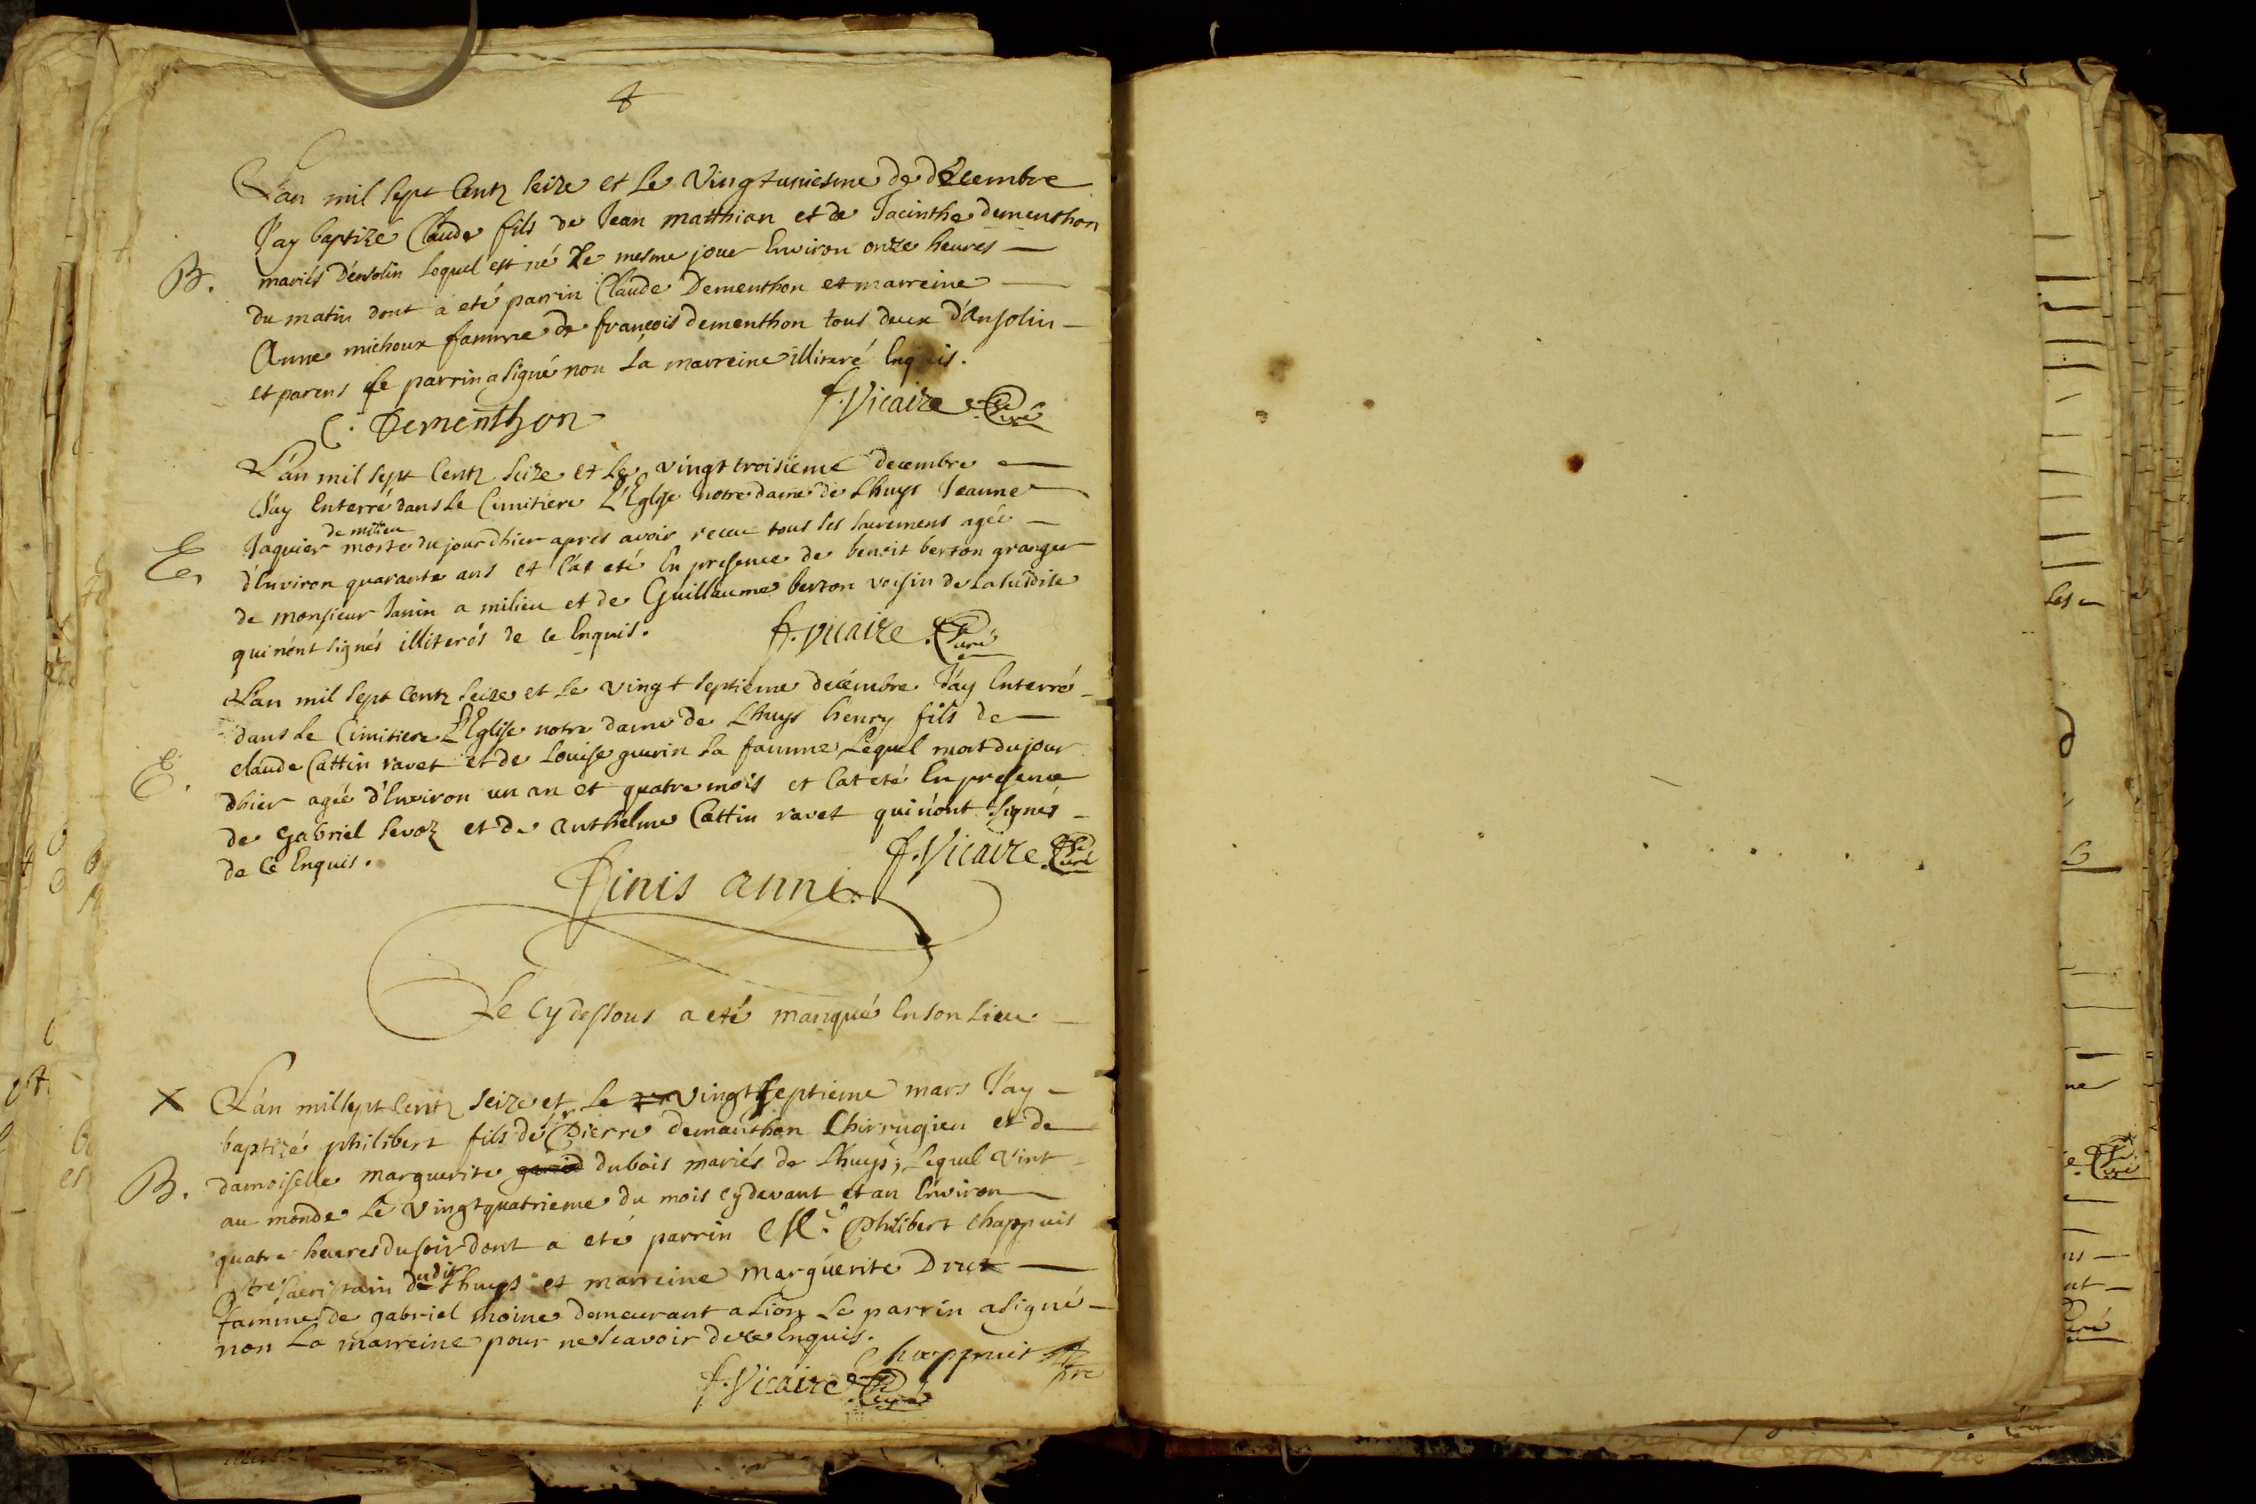 L'an mil sept centz seize et le vingtuniesme de décembre
J'ay baptizé Claude fils de Jean matthian et de Jacinthe dementhon
B. mariés d'énsolin lequel est né le mesme jour environ onze heures —
du matin dont a eté parrin Claude Dementhon et marreine —
Anne michoux famme de françois dementhon tous deux d'Ansolin —
et parens le parrin a signé non la marreine illiteré enquis.
C. Dementhon f. Vicaire Curé
L'an mil sept centz seize et le vingt troisieme decembre —
J'ay enterré dans le Cimitiere L'Eglise notre dame de Lhuys Jeanne —
de milieu
E. Jaquier morte du jour d'hier apres avoir receu tous les sacremens agée —
d'environ quarante ans et l'at eté en presence de benoit berton granger
de monsieur Janin a milieu et de Guillaume berton voisin de la susdite
qui n'ont signés illiterés de ce enquis. f. Vicaire Curé
L'an mil sept centz seize et le vingt septieme décembre J'ay enterré —
dans le Cimitiere L'Eglise notre dame de Lhuys henry fils de —
E. claude Cattin ravet et de Louise guerin sa famme, Lequel mort du jour
dhier agée d'environ un an et quatre mois et l'at eté en presence
de gabriel sevoz et de anthelme Cattin ravet qui n'ont signés —
de ce enquis. f. Vicaire Curé
Finis anni.
Le cy dessous a eté manqué en son lieu —
X L'an mil sept centz seize et le vingt septieme mars J'ay —
baptizé philibert fils de Pierre demanthon Chirrugien et de
B. damoiselle marguerite dubois mariés de Lhuys, Lequel vint
au monde le vingtquatrieme du mois cy devant et an environ
quatre heures du soir dont a eté parrin Mr. Philibert Chappuis
ptre sacristain dudit Lhuys et marreine marguerite Druet —
famme de gabriel moine demeurant a Lion le parrin a signé —
non la marreine pour ne scavoir de ce enquis.
Chappuis ptre
f. Vicaire Curé